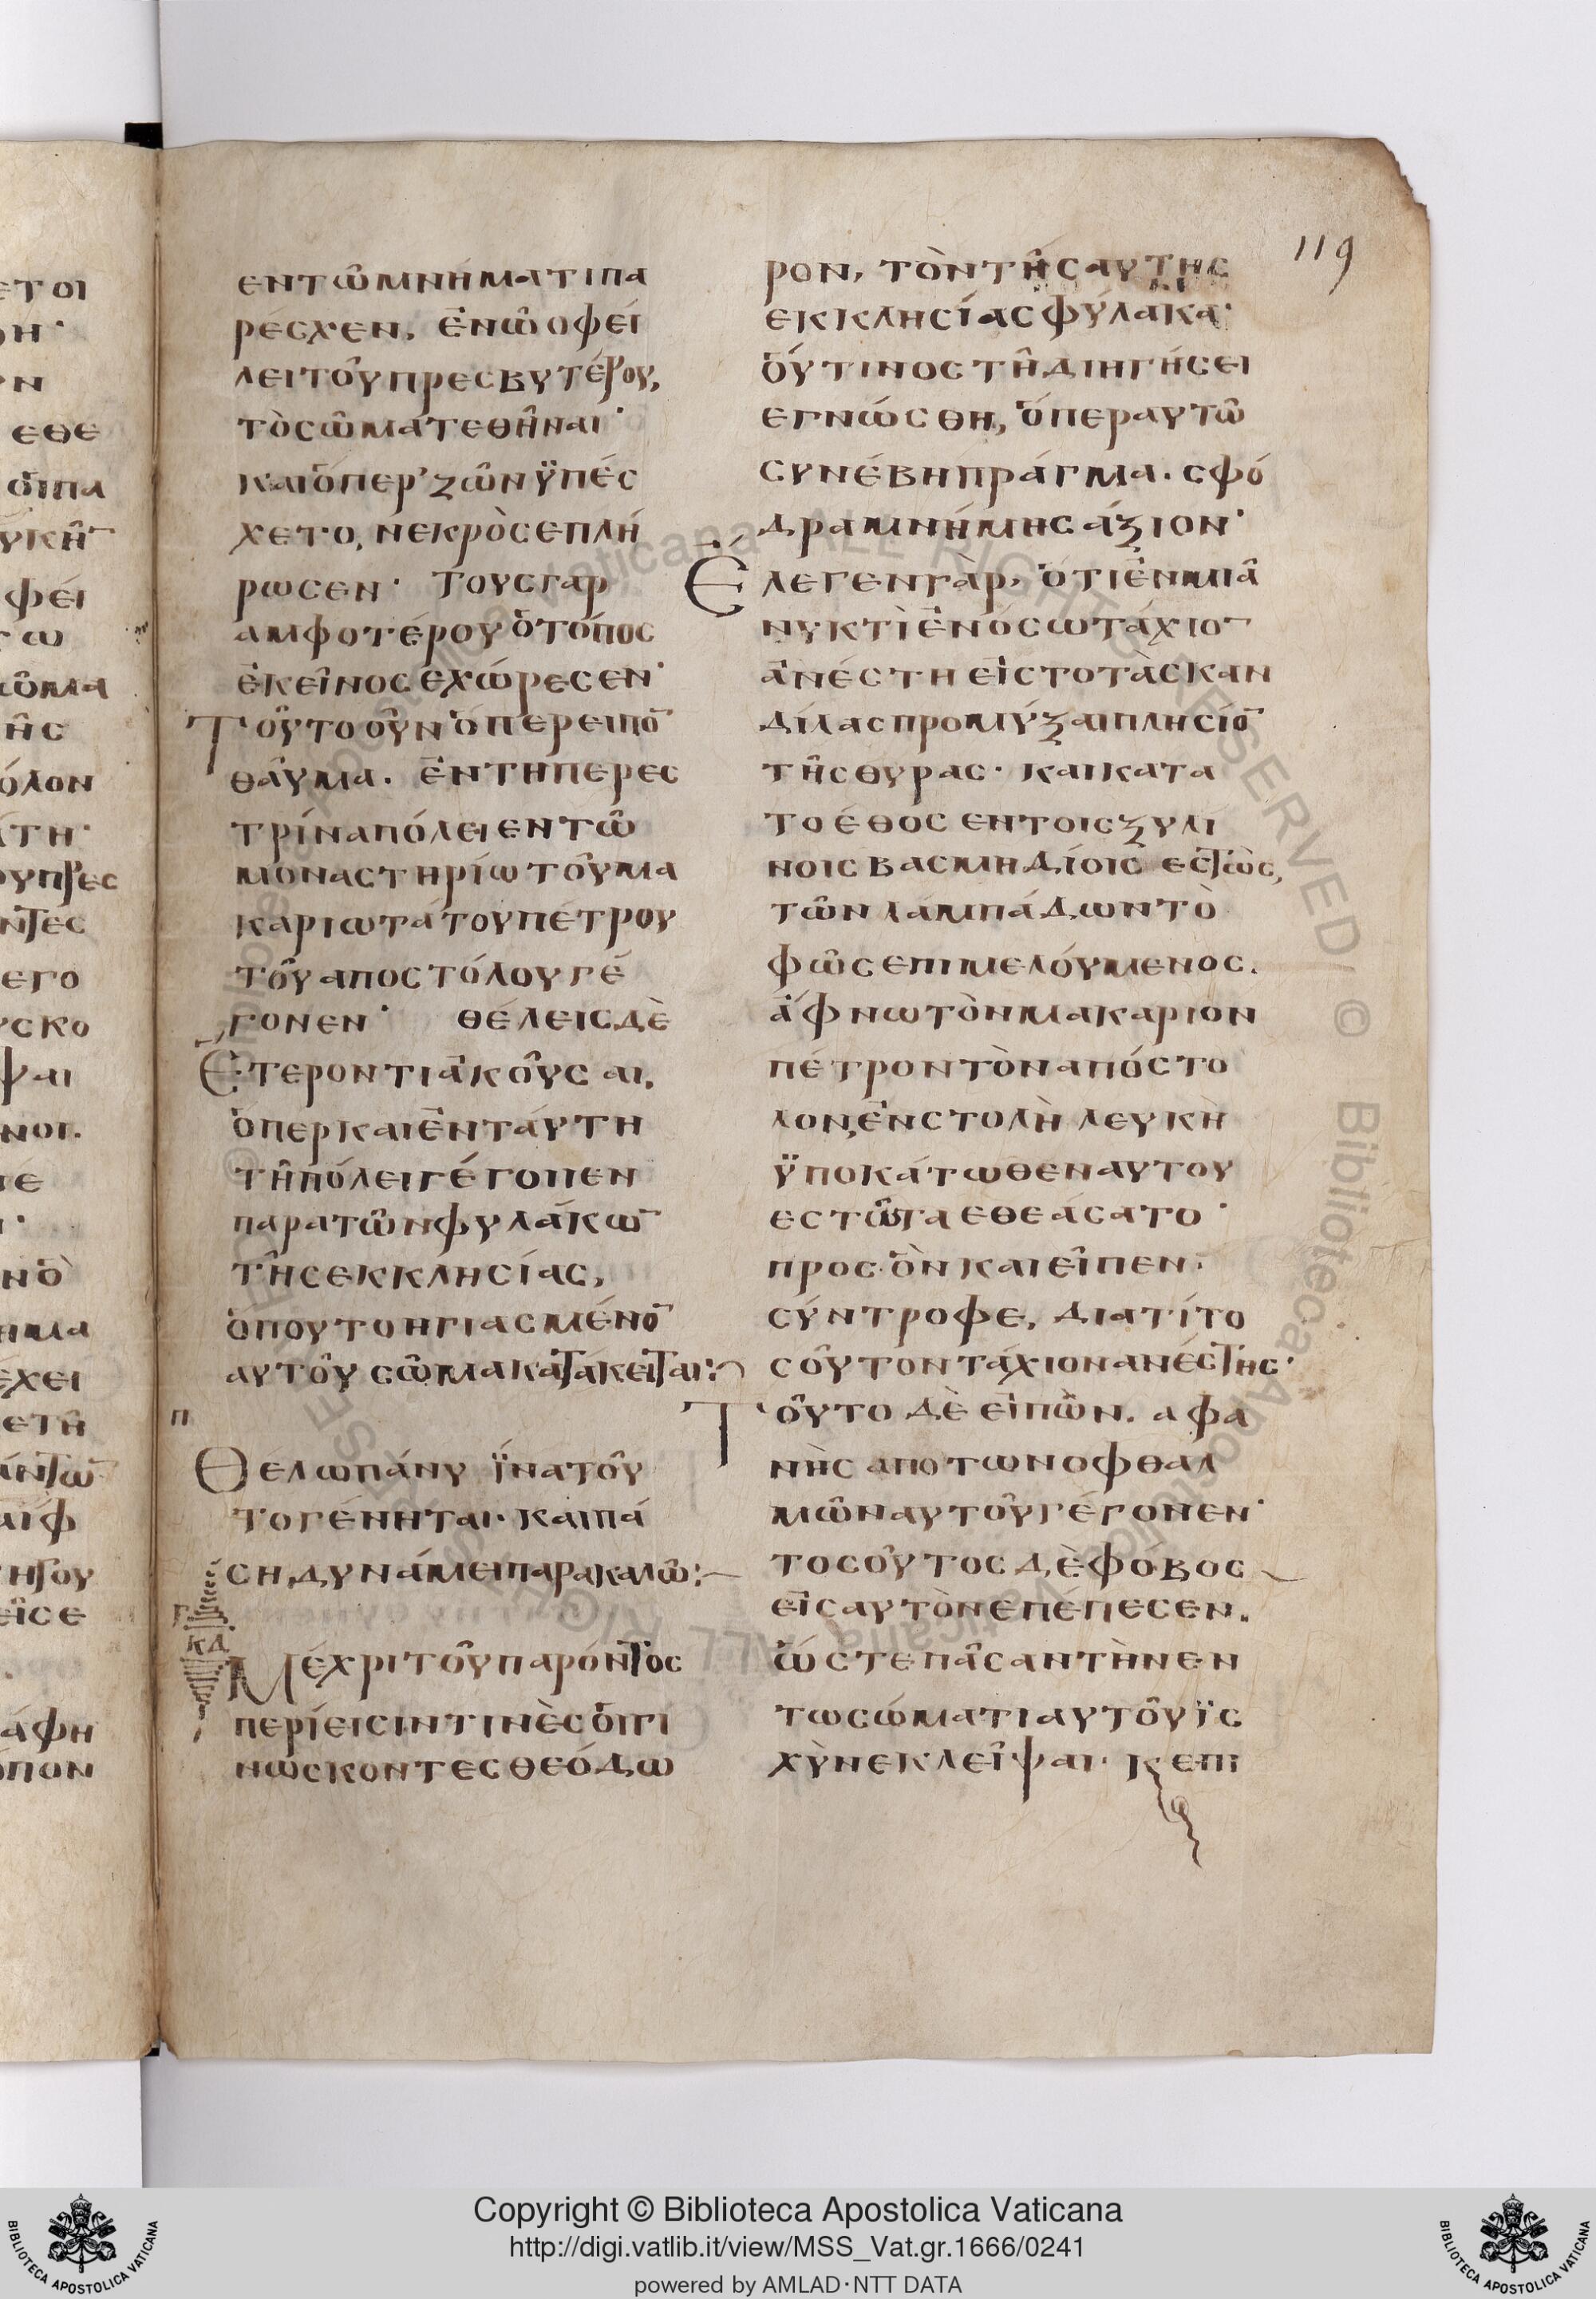 εντῶμνήματιπα
ρέσχεν, ἐνῶοφεί
λειτοῦπρεσβυτέρου,
τὸσῶματεθῆναι·
καιὅπερ'ζῶνϋπέσ
χετο, νεκρὸσεπλή
ρωσεν· τουσγαρ
αμφοτέρουὁτόποσ
ἐκεῖνοσεχώρεσεν·
Τοῦτοοῦνὅπερειπο̄
θάυμα. ἐντηπερεσ
τρίναπόλειεντῶ
μοναστηρίωτοῦμα
καριωτάτουπέτρου
τοῦαποστόλουγέ
γονεν· θέλεισδὲ
Ἕτεροντιἀκοῦσαι.
ὅπερκαιἐντάυτη
τῆπόλειγέγονεν
παρατῶνφυλάκω̄
τῆσεκκλησίασ,
ὅπουτοηγιασμένο̄
αυτοῦσῶμακατάκειται:~
π
Θελωπάνυ ἵνατοῦ
τογένηται· καιπά
σηδυνάμειπαρακαλῶ:~
κδ
Μέχριτοῦπαρόντοσ
περίεισιντινὲσὅιγι
νώσκοντεσθεόδω
119
ρον, τὸντῆσαυτησ
εκκλησίασφύλακα·
ὅυτινοστῆδιηγήσει
εγνώσθη, ὅπεραυτῶ
συνέβηπράγμα. σφό
δραμνήμησάξιον·
Ἔλεγενγὰρ, ὅτιἐνμιᾶ
νυκτὶἐνόσωτάχιο̄
ἀνέστηεἰστοτὰσκαν
δίλασπρομύξαιπλησίο̄
τῆσθυρασ· καικατα
τοέθοσεντοισξυλί
νοισβασμηδίοισεστὼσ,
τῶνλαμπάδωντὸ
φῶσεπιμελόυμενοσ.
ἄφνωτὸνμακαριον
πέτροντὸναπόστο
λον,ἐνστολὴλευκὴ
ϋποκάτωθεναυτου
εστῶταεθεάσατο·
προσὃνκαιεῖπεν·
σύντροφε, διατίτο
σοῦτοντάχιονανέστησ·
Τοῦτοδὲεἰπὼν. αφα
νὴσαποτωνοφθαλ
μῶναυτοῦγέγονεν·
τοσοῦτοσδὲφόβοσ
εἰσαυτὸνεπέπεσεν.
ὥστεπᾶσαντὴνεν
τωσώματιαυτοῦϊσ
χὺνεκλεῖψαι· κεπι
ετοι
ν
εθε
φέι
ῆσ
όλον
εγο
υσκο
ψαι
νὁ
έχει
ετῆ
άφη
όπον
Copyright © Biblioteca Apostolica Vaticana
http://digi.vatlib.it/view/MSS_Vat.gr.1666/0241
powered by AMLAD·NTT DATA